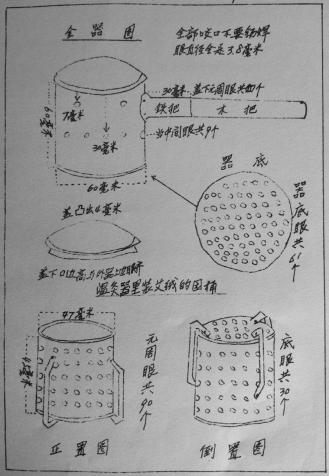 全器图
全部咬口不要锡焊
眼直径全是3.8毫米
30毫米
盖下元周眼共10个
7毫米
铁把
木把
30毫米
当中周眼共9个
60毫米
60毫米
器底
器底眼共61个
盖凸出4毫米
温灸器里装艾绒的圆桶
47毫米
元周眼共90个
底眼共30个
正置图
倒置图